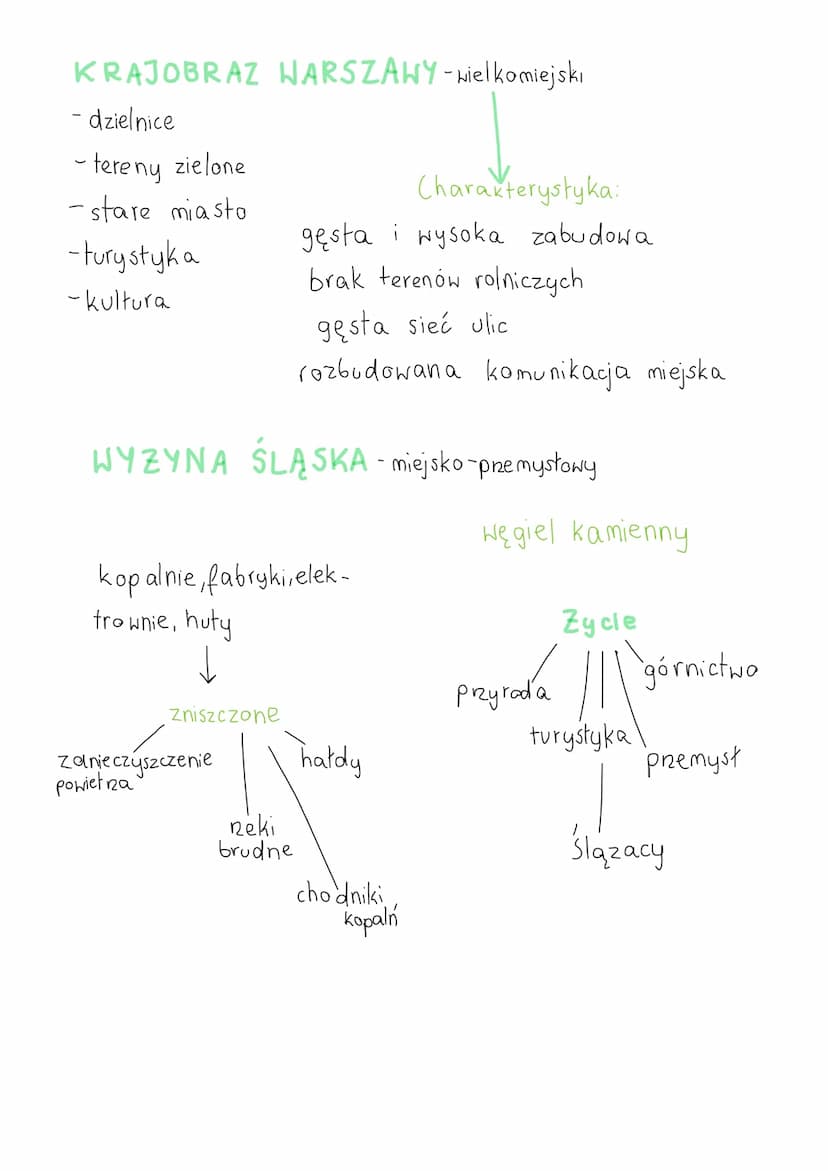 KRAJOBRAZ WARSZAWY - wielkomiejski
- dzielnice
- tereny zielone
- stare miasto
- turystyka
- kultura
Charakterystyka:
gęsta i wysoka zabudowa
brak terenów rolniczych
gęsta sieć ulic
rozbudowana komunikacja miejska
WYZYNA ŚLĄSKA - miejsko-przemysłowy
węgiel kamienny
kopalnie, fabryki, elek-
trownie, huty
zniszczone
zanieczyszczenie
powietrza
rzeki
brudne
chodniki
kopalń
hałdy
Życie
przyroda
turystyka
Ślązacy
przemysł
górnictwo